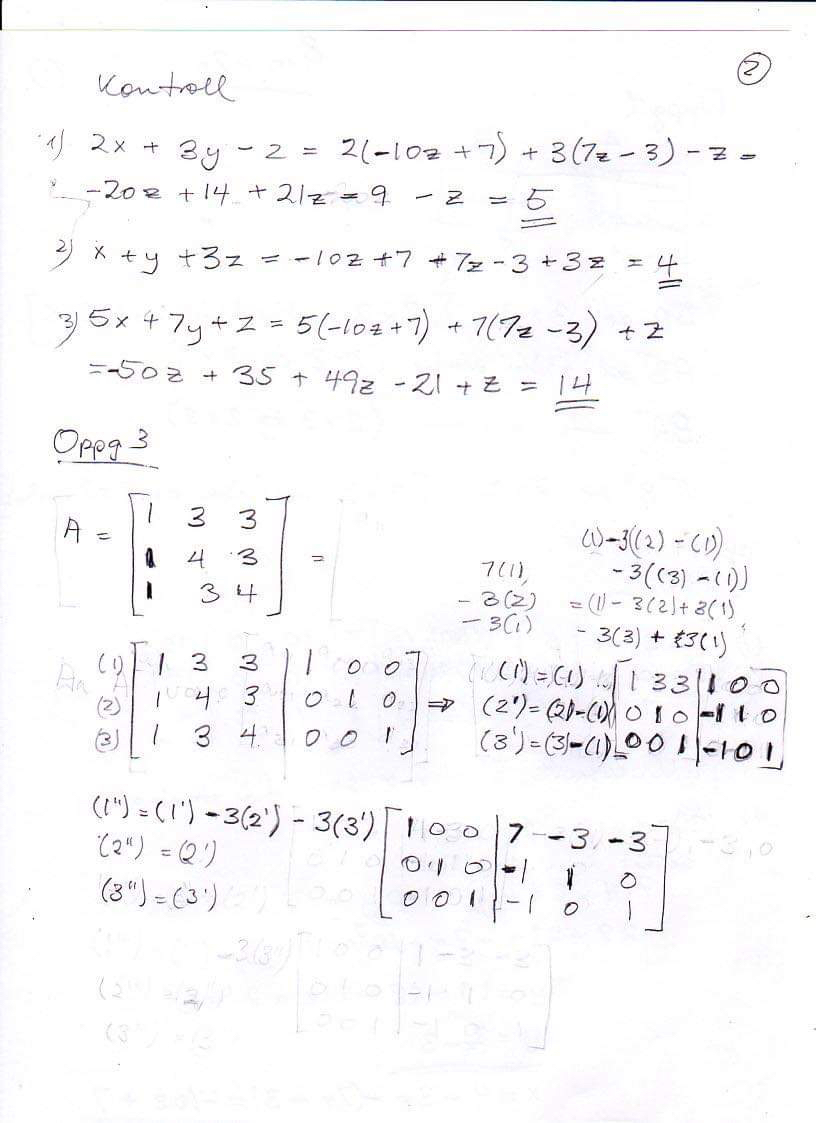 2
Kontroll
1) 2x + 3y - z = 2(-10z + 7) + 3(7z - 3) - z =
-20z + 14 + 21z - 9 - z = 5
2) x + y + 3z = -10z + 7 + 7z - 3 + 3z = 4
3) 5x + 7y + z = 5(-10z + 7) + 7(7z - 3) + z
= -50z + 35 + 49z - 21 + z = 14
Oppg 3
A = [1 3 3
1 4 3
1 3 4] =
(1) - 3((2) - (1))
- 3((3) - (1))
= (1) - 3(2) + 3(1)
- 3(3) + 3(1)
7(1),
- 3(2)
- 3(1)
(1) [1 3 3 | 1 0 0
(2) 1 4 3 | 0 1 0
(3) 1 3 4 | 0 0 1] ⇒
(1') = (1) [1 3 3 | 1 0 0
(2') = (2) - (1) 0 1 0 | -1 1 0
(3') = (3) - (1) = 0 0 1 | -1 0 1]
(1'') = (1') - 3(2') - 3(3') [1 0 0 | 7 -3 -3
(2'') = (2') 0 1 0 | -1 1 0
(3'') = (3') 0 0 1 | -1 0 1]